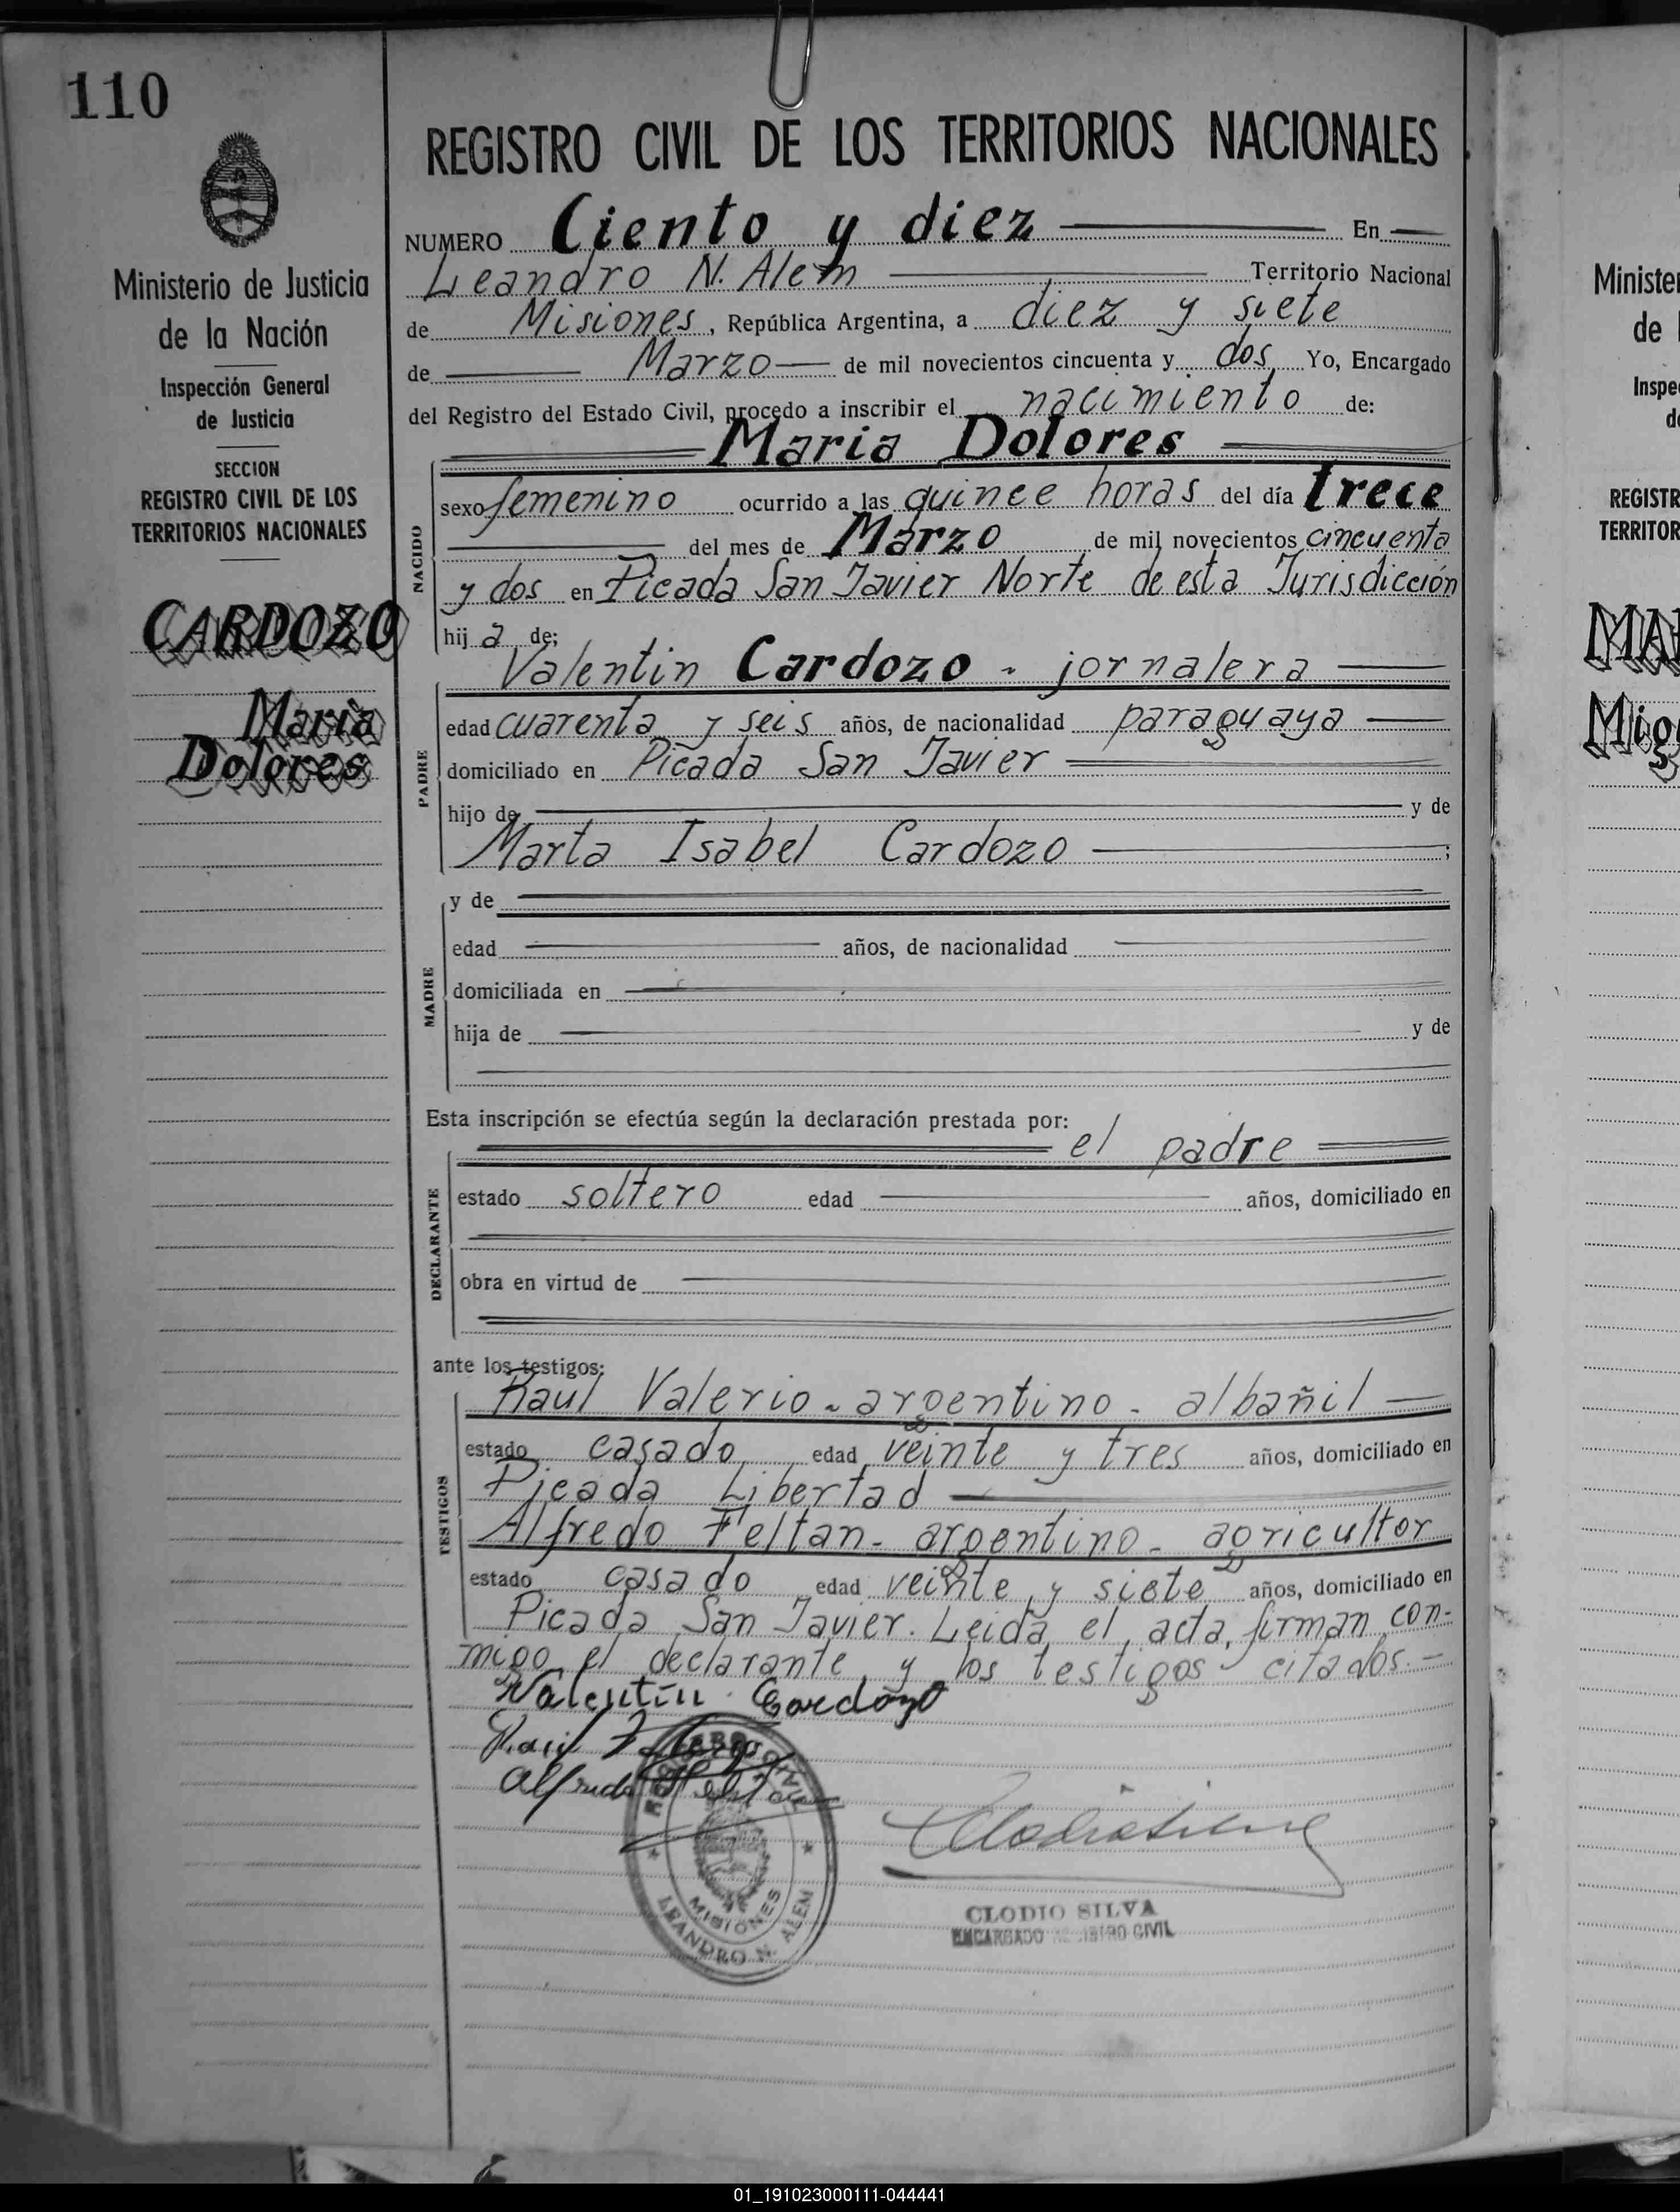 110
Ministerio de Justicia
de la Nación
Inspección General
de Justicia
SECCION
REGISTRO CIVIL DE LOS
TERRITORIOS NACIONALES
CARDOZO
Maria
Dolores
REGISTRO CIVIL DE LOS TERRITORIOS NACIONALES
NUMERO Ciento y diez En
Leandro N. Alem Territorio Nacional
de Misiones, República Argentina, a diez y siete
de Marzo de mil novecientos cincuenta y dos Yo, Encargado
del Registro del Estado Civil, procedo a inscribir el nacimiento de:
Maria Dolores
NACIDO
sexo femenino ocurrido a las quince horas del día trece
del mes de Marzo de mil novecientos cincuenta
y dos en Picada San Javier Norte de esta Jurisdicción
hij a de:
Valentin Cardozo - jornalera
PADRE
edad cuarenta y seis años, de nacionalidad paraguaya
domiciliado en Picada San Javier
hijo de y de
Marta Isabel Cardozo ;
MADRE
y de
edad años, de nacionalidad
domiciliada en
hija de y de
Esta inscripción se efectúa según la declaración prestada por:
el padre
DECLARANTE
estado soltero edad años, domiciliado en
obra en virtud de
ante los testigos:
TESTIGOS
Raul Valerio - argentino - albañil
estado casado edad veinte y tres años, domiciliado en
Picada Libertad
Alfredo Feltan - argentino - agricultor
estado casado edad veinte y siete años, domiciliado en
Picada San Javier. Leida el acta, firman con-
migo el declarante y los testigos citados.-
Valentin Cardozo
Alfredo
REGISTRO CIVIL
MISIONES
LEANDRO N. ALEM
CLODIO SILVA
ENCARGADO REGISTRO CIVIL
Minister
de l
Inspe
de
REGISTR
TERRITOR
MA
Mig
01_191023000111-044441